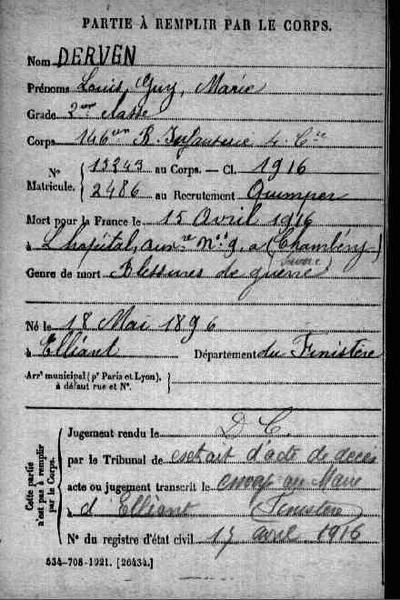 PARTIE À REMPLIR PAR LE CORPS.
Nom DERVEN
Prénoms Louis, Guy, Marie
Grade 2ème classe
Corps 146ème R. Infanterie 4. Cie
N° Matricule. { 13343 au Corps. — Cl. 1916
2486 au Recrutement Quimper
Mort pour la France le 15 Avril 1916
à L'hôpital, auxre N° 9, à (Chambéry)
Savoie
Genre de mort Blessures de guerre
Né le 18 Mai 1896
à Elliant Département du Finistère
Arrt municipal (pr Paris et Lyon), à défaut rue et N°.
Cette partie n'est pas à remplir par le Corps.
Jugement rendu le D C.
par le Tribunal de extrait d'acte de décès
acte ou jugement transcrit le envoyé au Maire
à d'Elliant (Finistère)
N° du registre d'état civil 17 avril 1916
534-708-1921. [26434.]